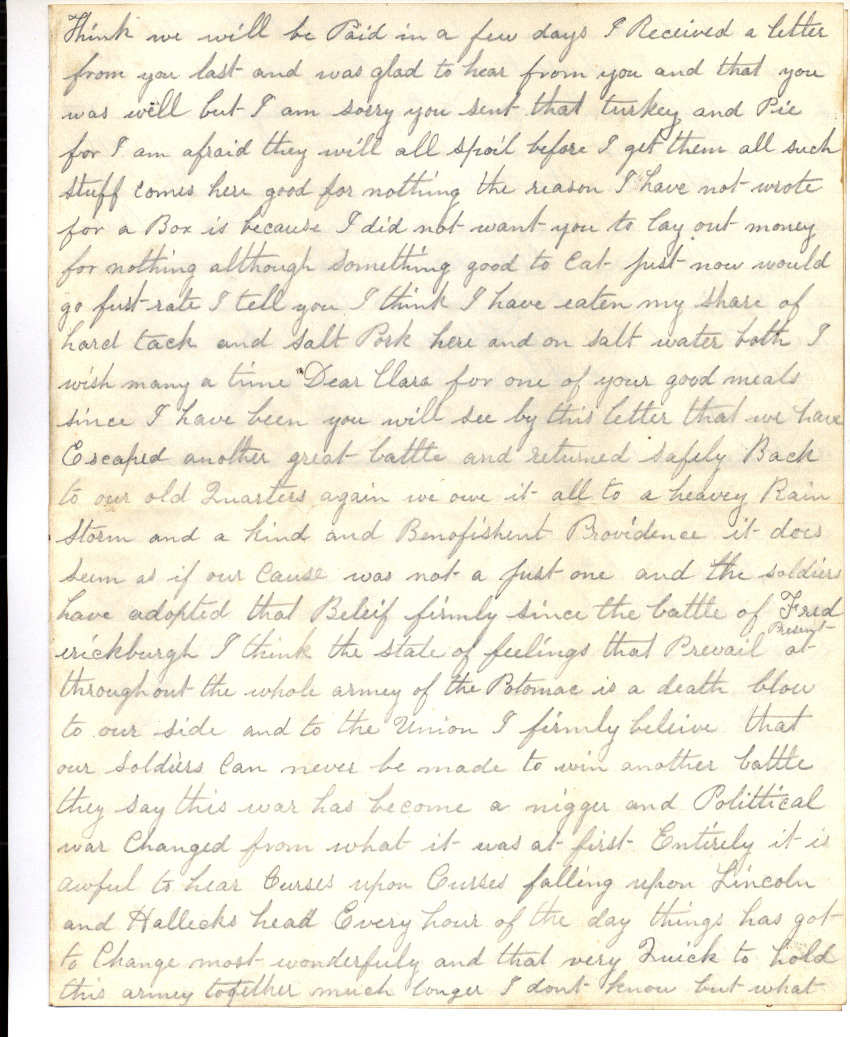 Think we will be Paid in a few days I Received a letter
from you last and was glad to hear from you and that you
was well but I am sorry you sent that turkey and Pie
for I am afraid they will all spoil before I get them all such
stuff comes here good for nothing the reason I have not wrote
for a Box is because I did not want you to lay out money
for nothing although something good to Eat just now would
go furst rate I tell you I think I have eaten my share of
hard tack and salt Pork here and on salt water both I
wish many a time Dear Clara for one of your good meals
since I have been you will see by this letter that we have
Escaped another great battle and returned safely Back
to our old Quarters again we owe it all to a heavey Rain
Storm and a kind and Benofishent Providence it does
seem as if our Cause was not a just one and the soldiers
have adopted that Beleif firmly since the battle of Fred
erickburgh I think the state of feelings that Prevail at Present
throughout the whole army of the Potomac is a death blow
to our side and to the Union I firmly beleive that
our Soldiers Can never be made to win another battle
they say this war has become a nigger and Polittical
war Changed from what it was at first Entirely it is
awful to hear Curses upon Curses falling upon Lincoln
and Hallecks head Every hour of the day things has got
to Change most wonderfuly and that very Quick to hold
this armey together much longer I dont know but what